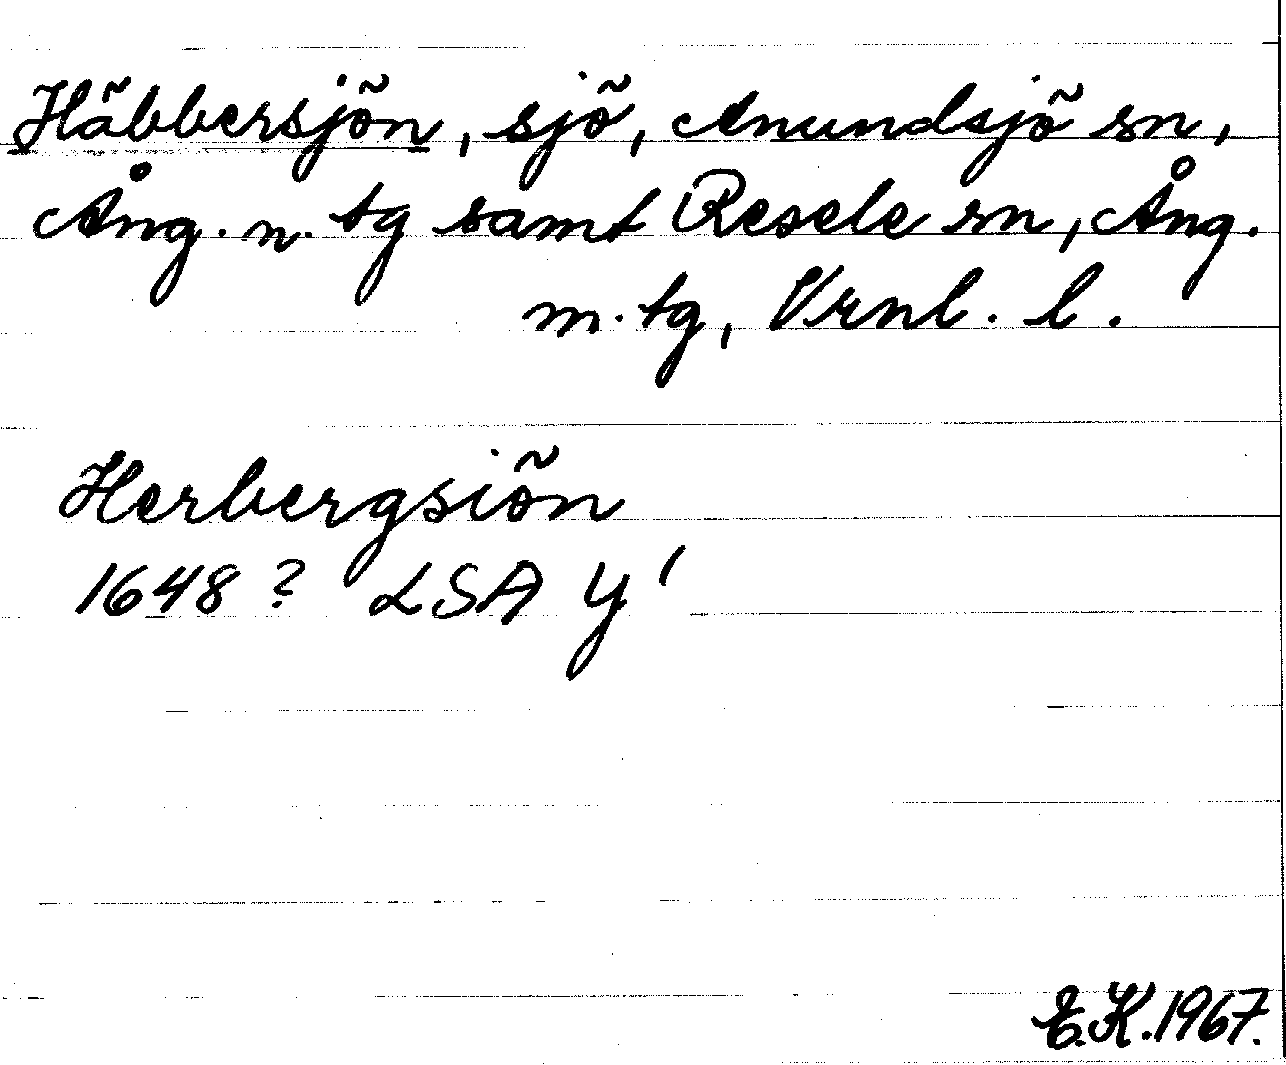 Häbbersjön, sjö, Anundsjö sn,
Ång. n. tg samt Resele sn, Ång.
m. tg, Vrnl. l.
Herbergsiön
1648? LSA Y'
E.K. 1967.